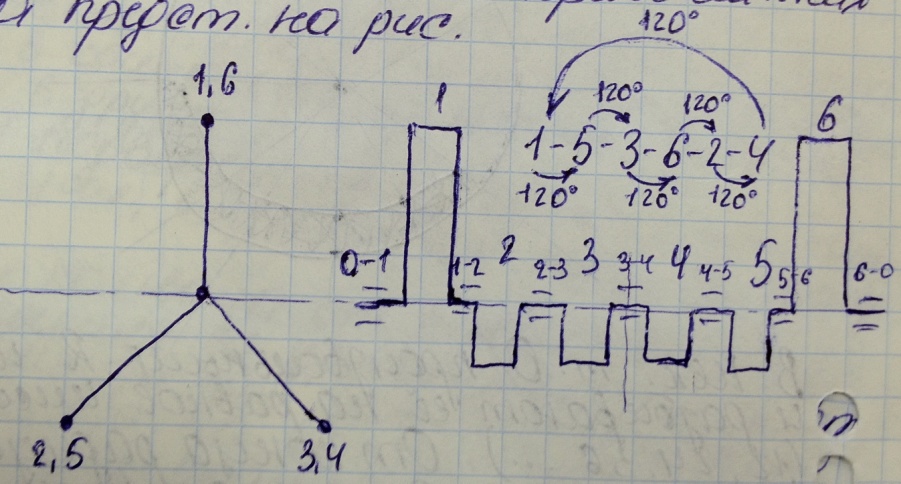 предст. на рис.
120°
1,6
1
120° 120°
6
1-5-3-6-2-4
120° 120° 120°
0-1 1-2 2 2-3 3 3-4 4 4-5 5 5-6 6-0
2,5
3,4